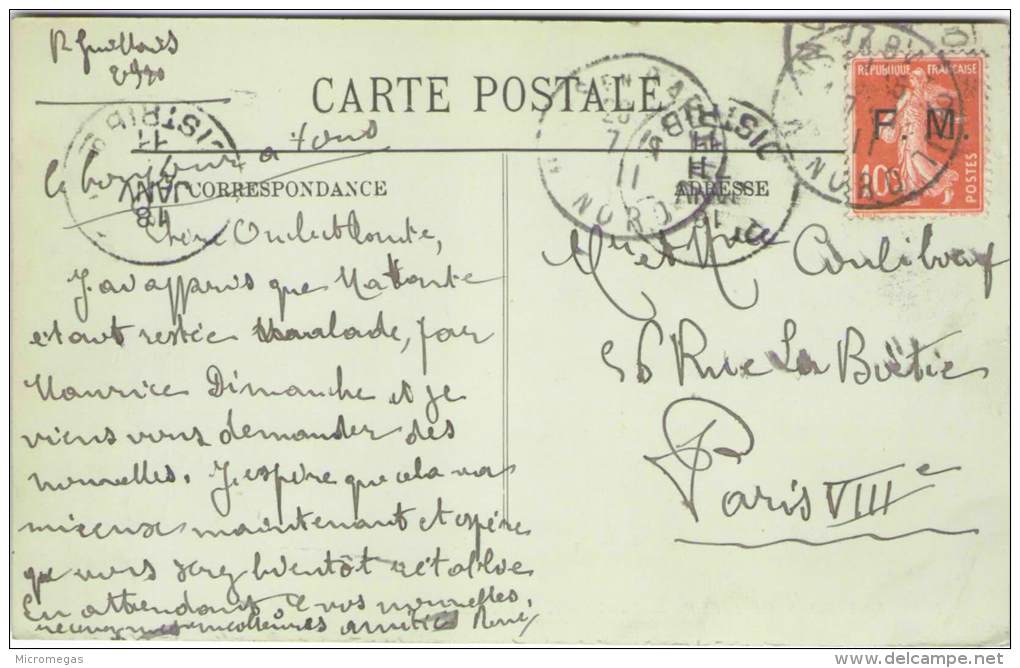 R. Guillois
CARTE POSTALE
le bonjour à tous
CORRESPONDANCE
ADRESSE
RÉPUBLIQUE FRANÇAISE
F. M.
10c
POSTES
DISTRIB
11
JANV
18
NORD
Chère Oncle et Tante,
J'ai appris que Ma Tante
étant restée malade, par
Maurice Dimanche et je
viens vous demander des
nouvelles. J'espère que cela va
mieux maintenant et espère
que vous serez bientôt rétablie
En attendant de vos nouvelles,
recevez mes meilleures amitiés René
Mr et Mme
56 Rue La Boëtie
Paris VIIIe
Micromegas
delcampe.net